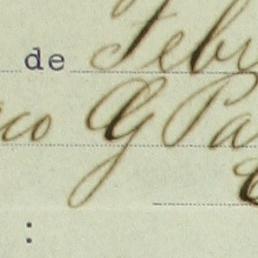 de Febr
co G Pa
: